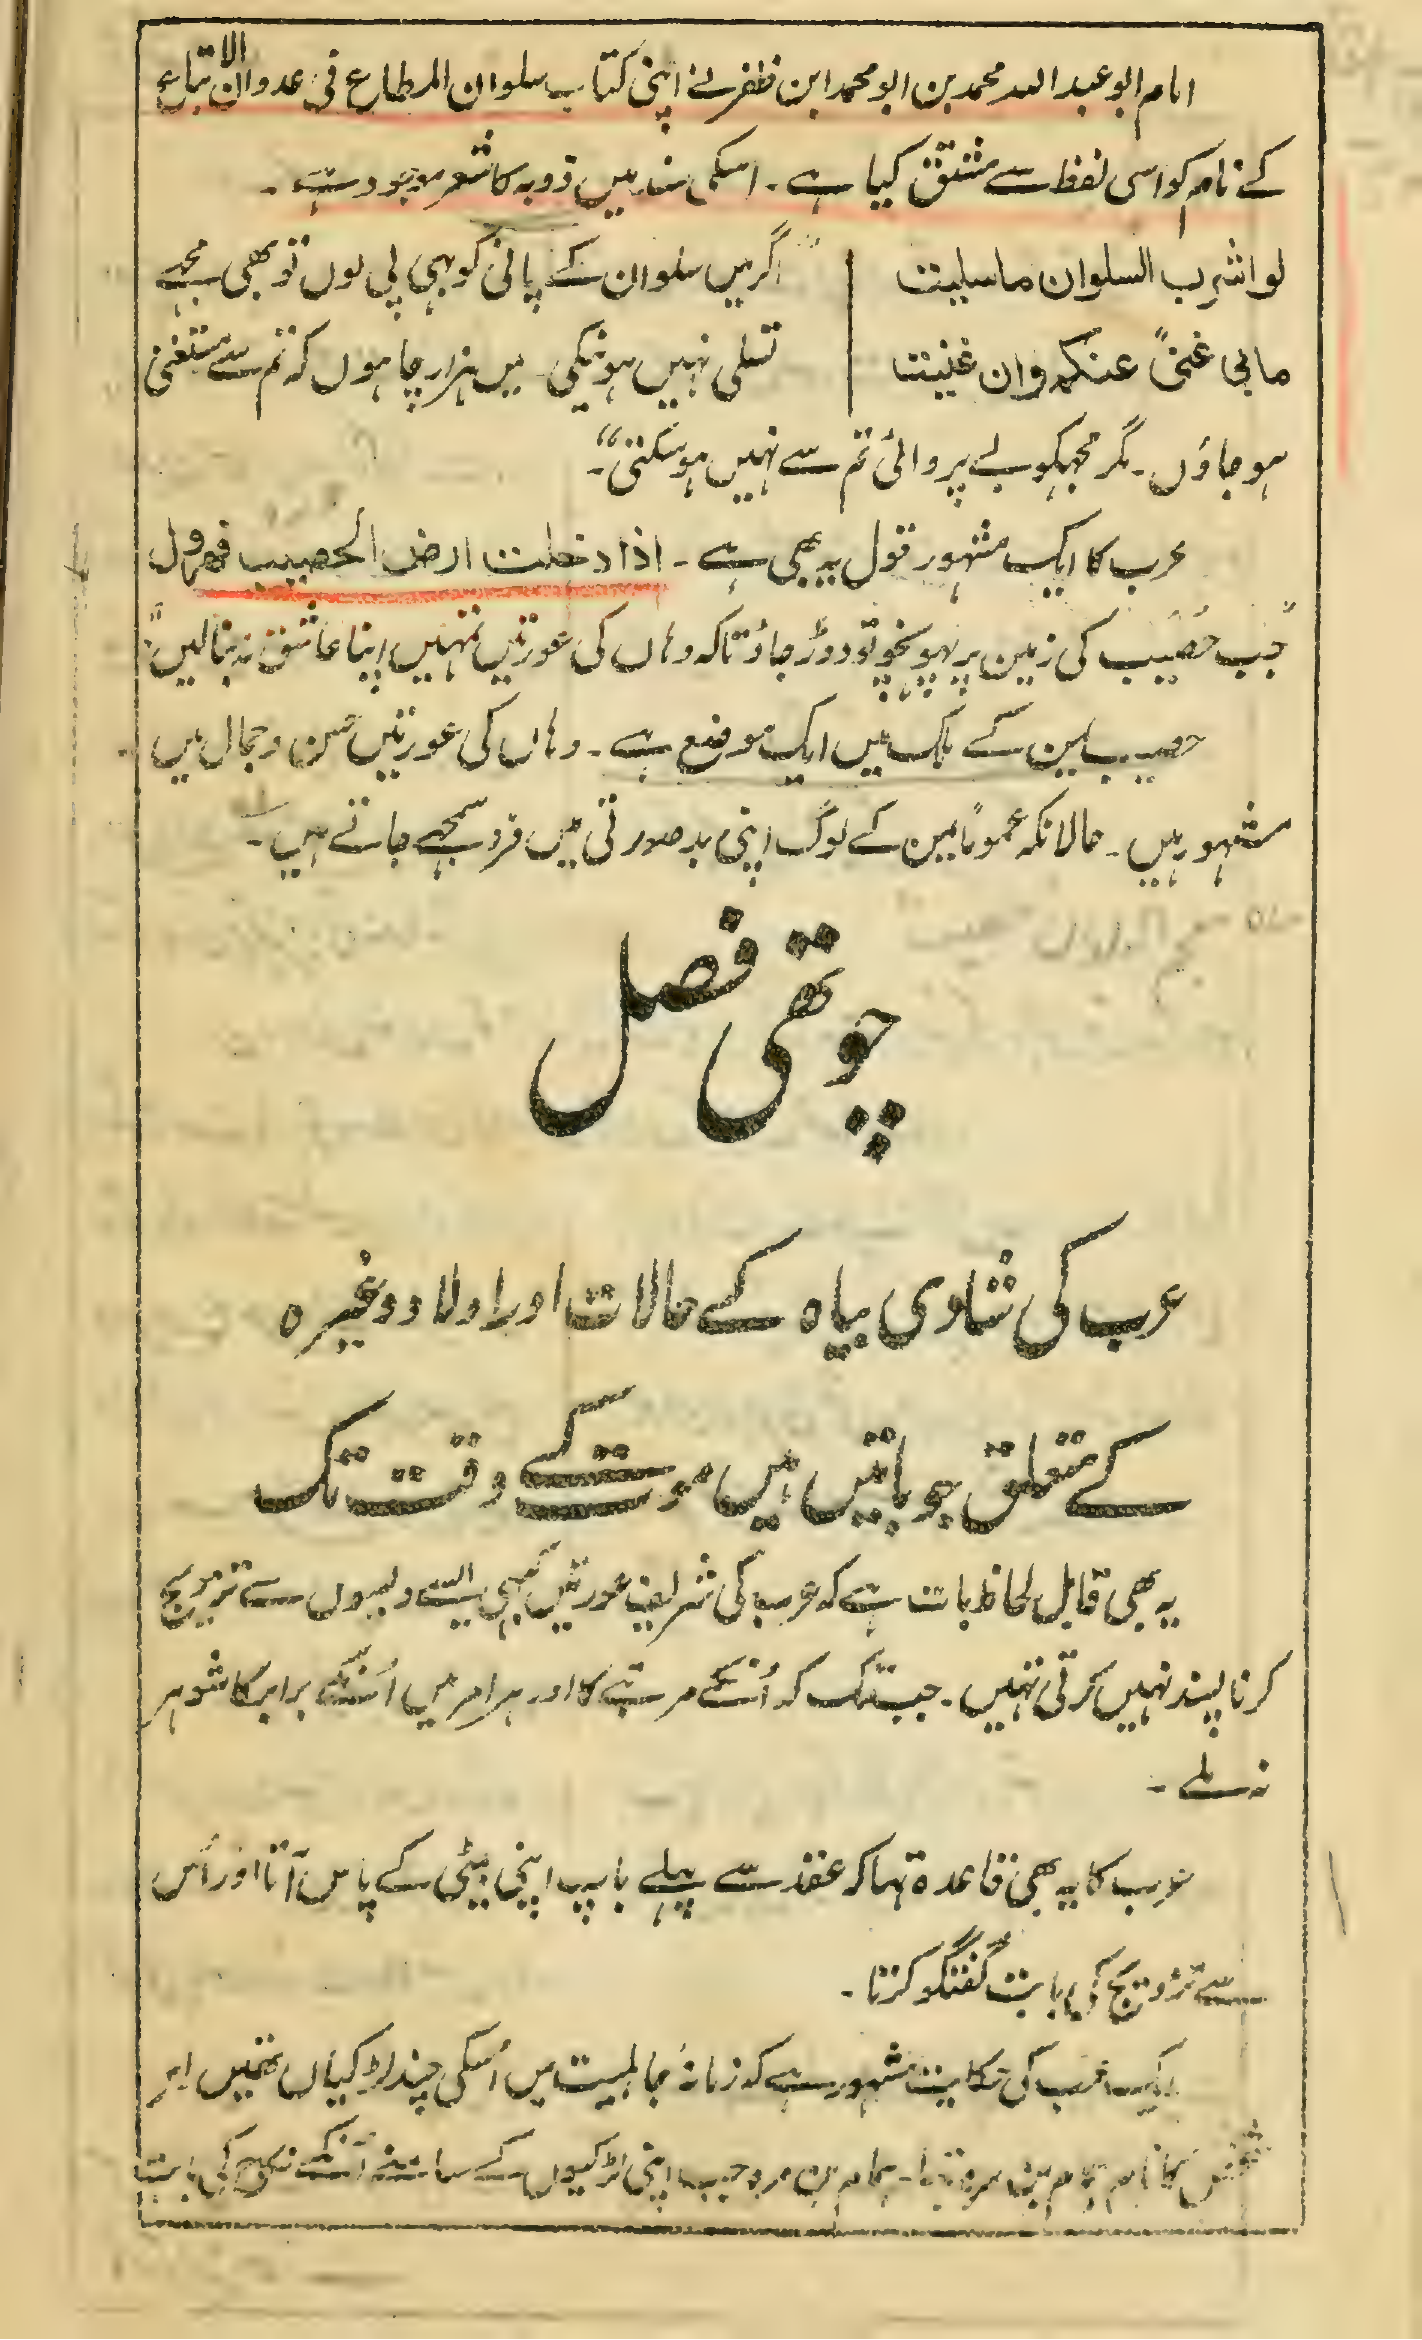 امام ابو عبد اللہ محمد بن ابو محمد ابن ظفر نے اپنی کتاب سلوان المطاع فی عدوان الاتباع
کے نام کو اسی لفظ سے مشتق کیا ہے۔ اسکی سند میں روبہ کا شعر موجود ہے۔
لو اشرب السلوان ما سلیت
مابی غنیً عنک وان غنیت
اگر میں سلوان کے پانی کو بھی پی لوں تو بھی مجھے
تسلی نہیں ہونیکی۔ میں ہزار چاہوں کہ تم سے مستغنی
ہو جاؤں۔ مگر مجھکو بے پروائی تم سے نہیں ہوسکتی“۔
عرب کا ایک مشہور قول یہ بھی ہے۔ اذا دخلت ارض الحصیب فھرول
”جب حصُیَب کی زمین پر پہونچو تو دوڑ جاؤ تاکہ وہاں کی عورتیں تمہیں اپنا عاشق نہ بنالیں“۔
حصیب یمن کے ملک میں ایک موضع ہے۔ وہاں کی عورتیں حسن و جمال میں
مشہور ہیں۔ حالانکہ عموماً یمن کے لوگ اپنی بدصورتی میں فرد سمجھے جاتے ہیں۔
چوتھی فصل
عرب کی شادی بیاہ کے حالات اور اولاد وغیرہ
کے متعلق جو باتیں ہیں موت کے وقت تک
یہ بھی قابل لحاظ بات ہے کہ عرب کی شریف عورتیں کبھی ایسے ویسوں سے تزویج
کرنا پسند نہیں کرتی تہیں۔ جبتک کہ اُنکے مرتبے کا اور ہر امر میں اُنکے برابر کا شوہر
نہ ملے۔
عرب کا یہ بھی قاعدہ تہا کہ عقد سے پہلے باپ اپنی بیٹی کے پاس آتا اور اُس
سے تزویج کی بابت گفتگو کرتا۔
ایک عرب کی حکایت مشہور ہے کہ زمانۂ جاہلیت میں اُسکی چند لڑکیاں تھیں اس
شخص کا نام ہمام بن مرہ تہا۔ ہمام بن مرہ جب اپنی لڑکیوں کے سامنے اُنکے نکاح کی بابت